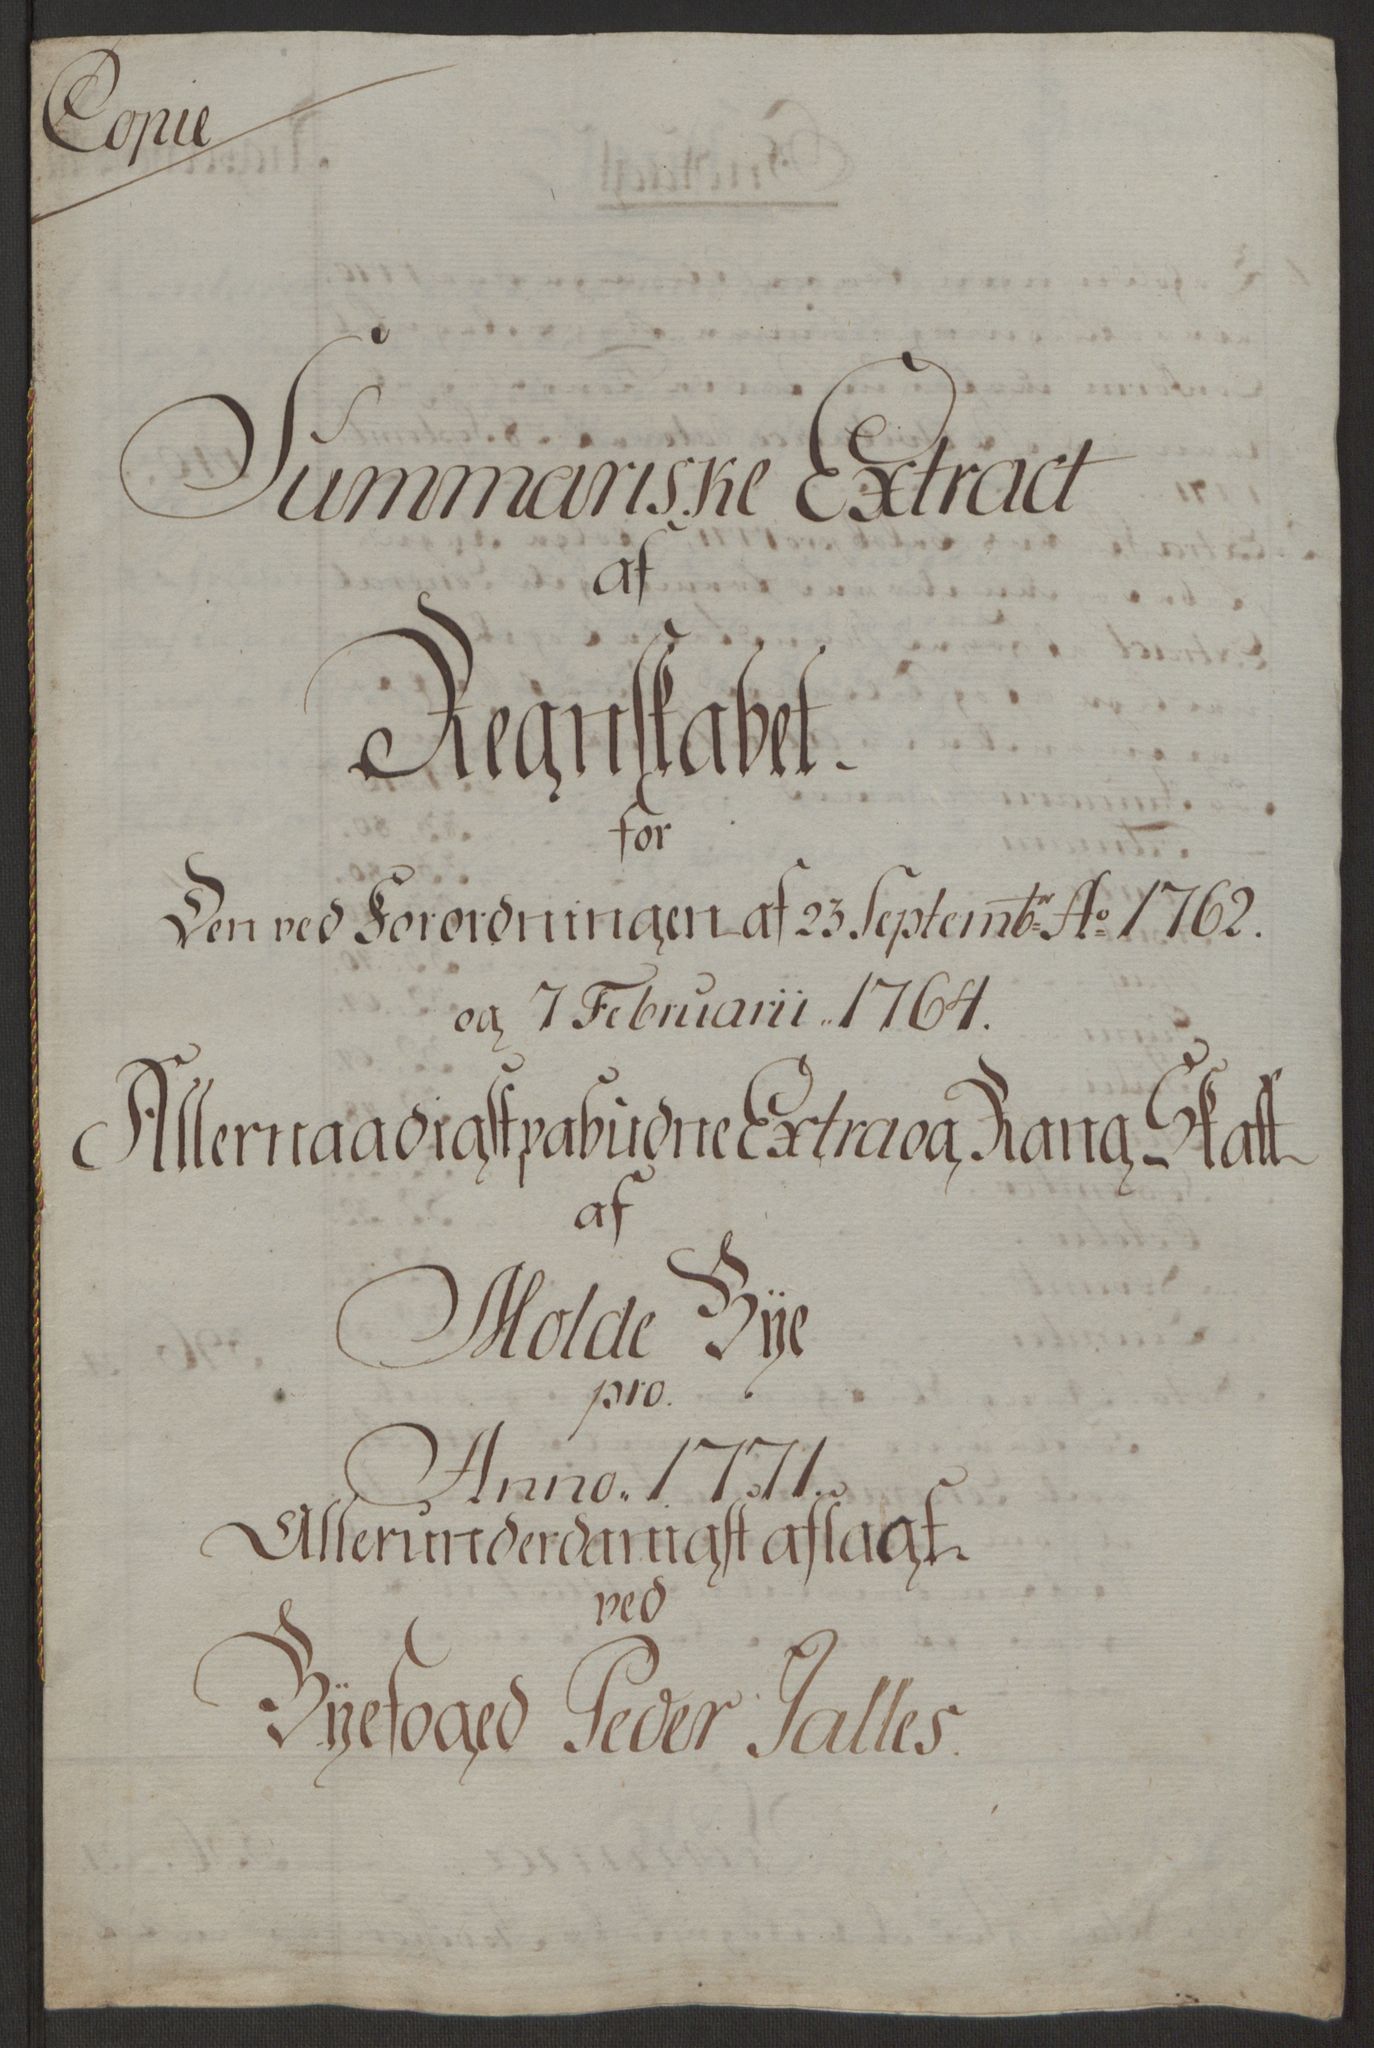 Copie
Summariske Extract
af
Regnskabet.
for
Den ved Forordningen af 23 Septembr: Ao: 1762.
og 7 Februarii 1764.
Allernaadigst pabudne Extra og Rang Skatt
af
Molde Bÿe
pro.
Anno. 1771.
Allerunderdanigst aflagt
ved
Bÿefoged Peder Jalles.